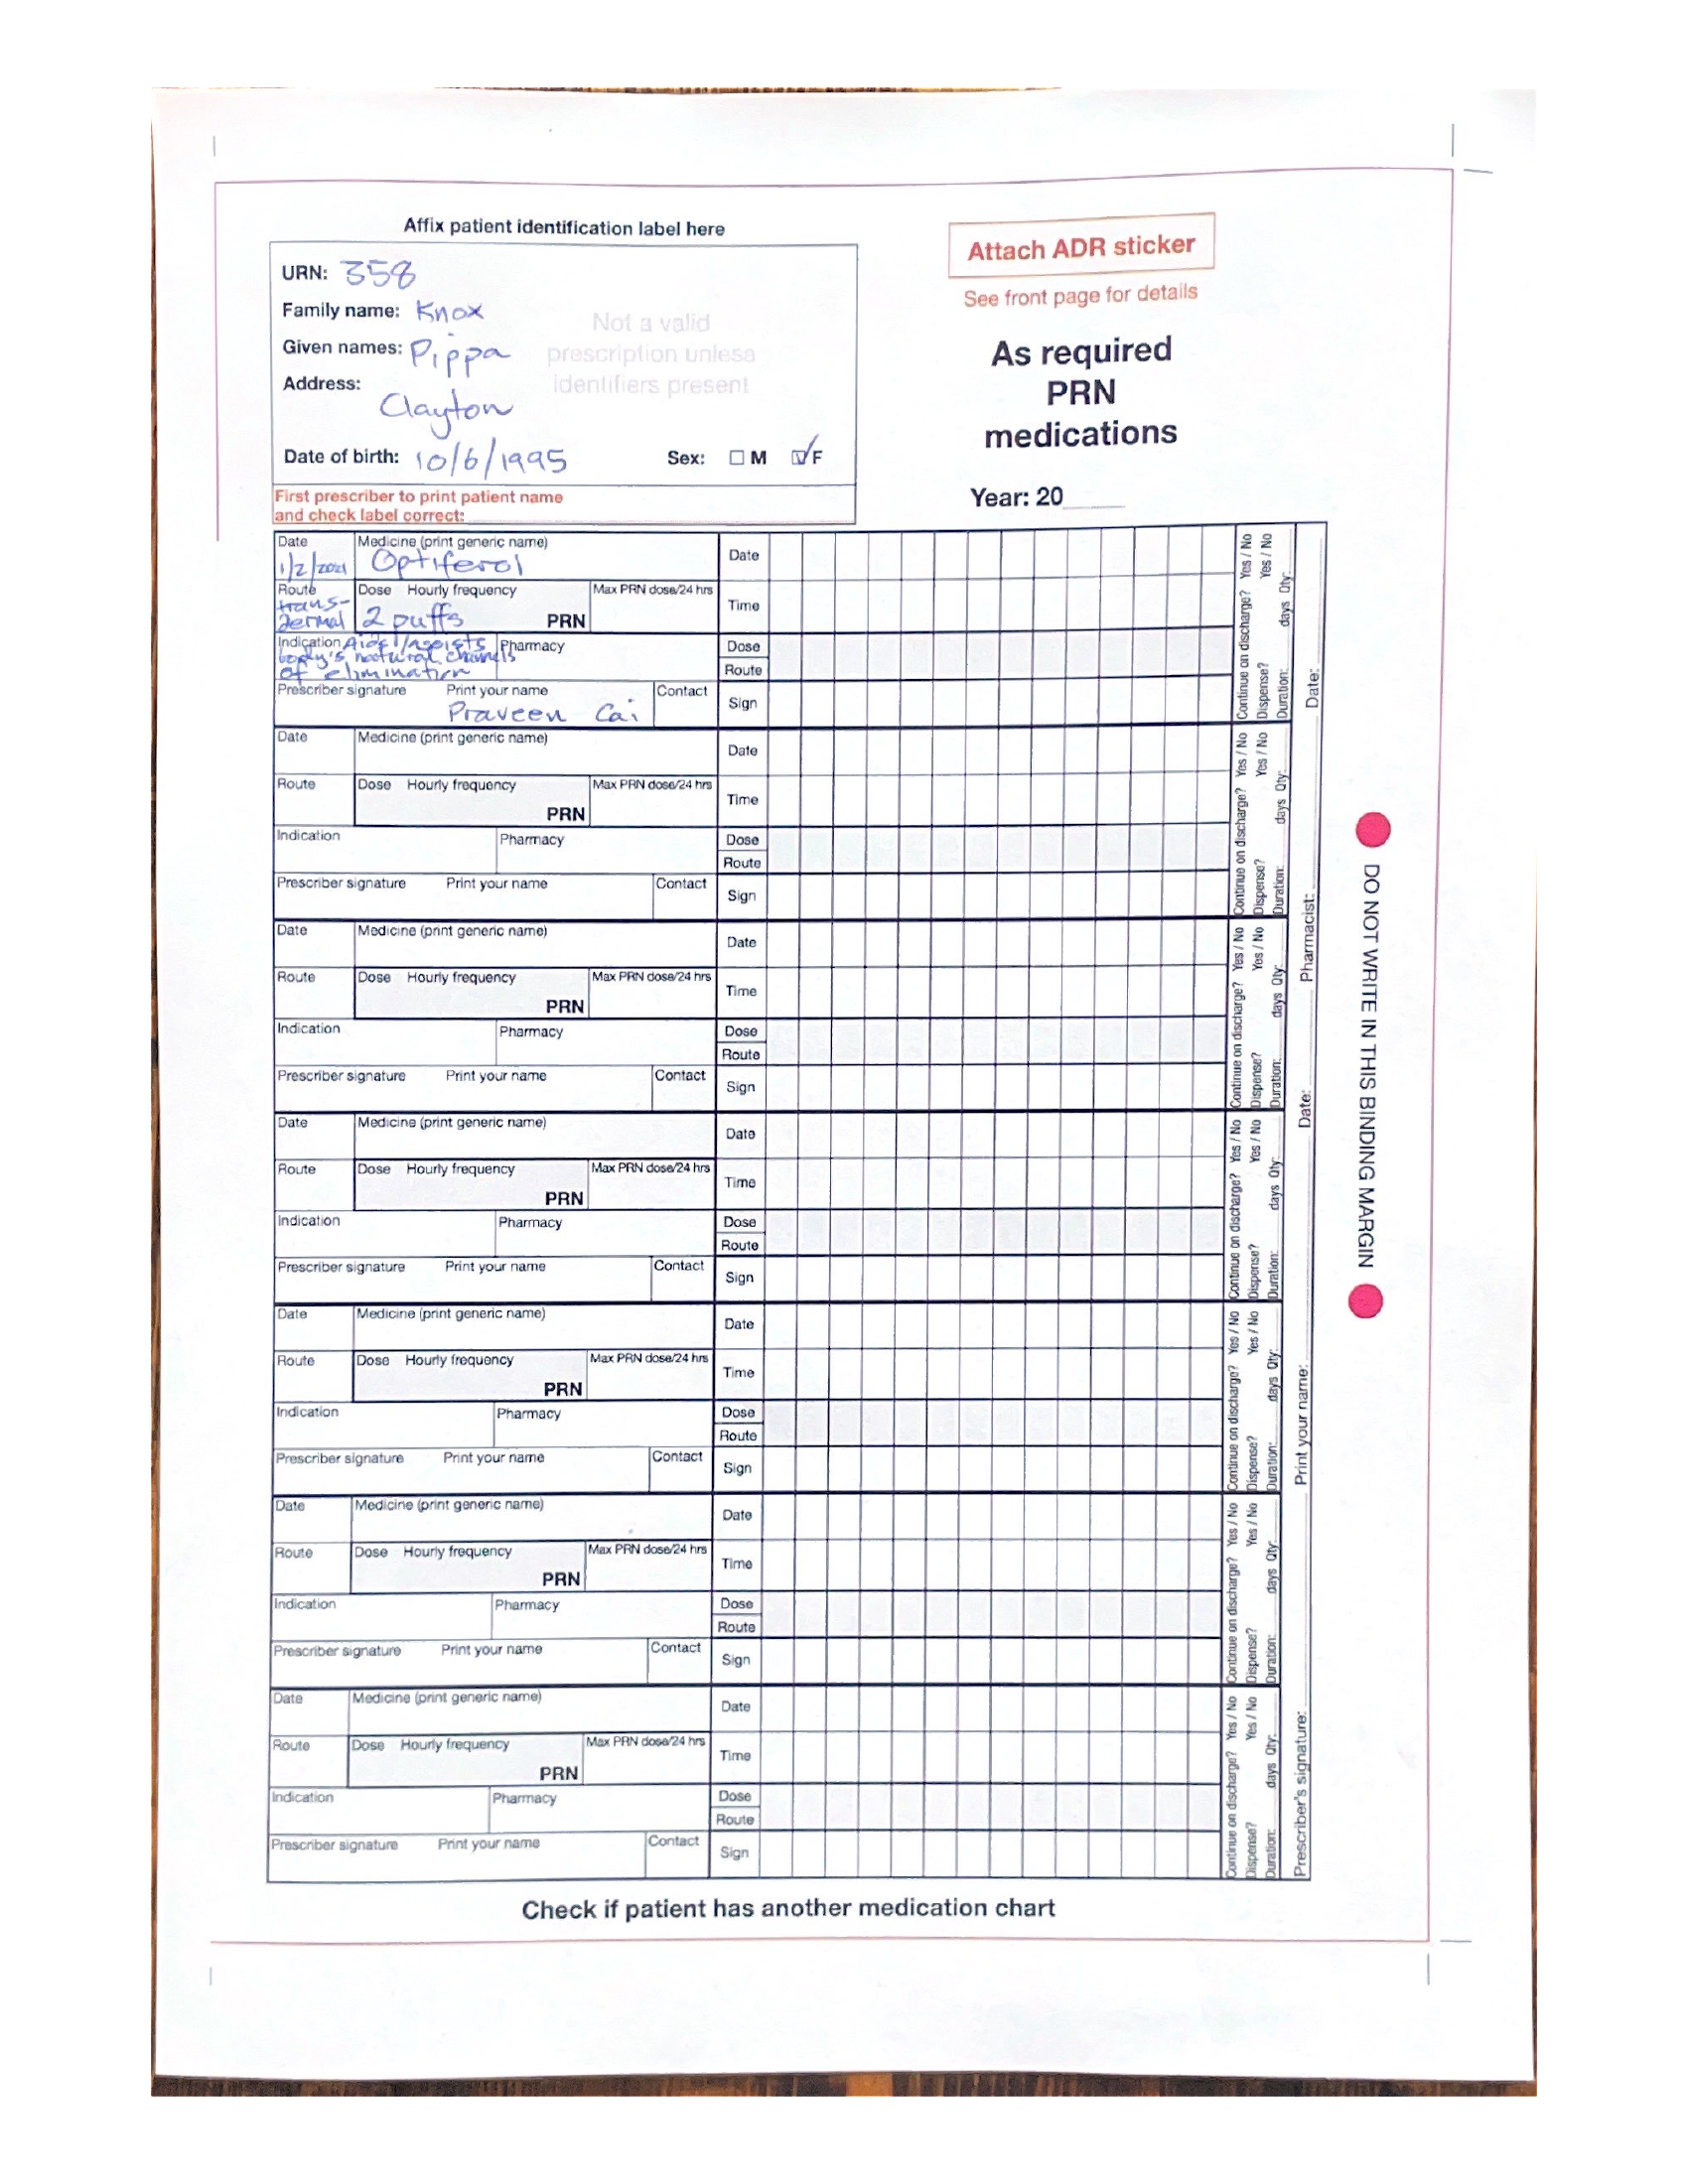 Affix patient identification label here
URN: 358
Family name: Knox
Given names: Pippa
Address: Clayton
Not a valid
prescription unless
identifiers present
Date of birth: 10/6/1995 Sex: M F
First prescriber to print patient name
and check label correct:
Attach ADR sticker
See front page for details
As required
PRN
medications
Year: 20
Date 1/2/2021 Medicine (print generic name) Optiferol Date
Route trans-dermal Dose Hourly frequency 2 puffs PRN Max PRN dose/24 hrs Time
Indication Aids/assists body's natural channels of elimination Pharmacy Dose
Route
Prescriber signature Print your name Praveen Cai Contact Sign
Continue on discharge? Yes / No
Dispense? Yes / No
Duration: days Qty:
Date Medicine (print generic name) Date
Route Dose Hourly frequency PRN Max PRN dose/24 hrs Time
Indication Pharmacy Dose
Route
Prescriber signature Print your name Contact Sign
Continue on discharge? Yes / No
Dispense? Yes / No
Duration: days Qty:
Date Medicine (print generic name) Date
Route Dose Hourly frequency PRN Max PRN dose/24 hrs Time
Indication Pharmacy Dose
Route
Prescriber signature Print your name Contact Sign
Continue on discharge? Yes / No
Dispense? Yes / No
Duration: days Qty:
Date Medicine (print generic name) Date
Route Dose Hourly frequency PRN Max PRN dose/24 hrs Time
Indication Pharmacy Dose
Route
Prescriber signature Print your name Contact Sign
Continue on discharge? Yes / No
Dispense? Yes / No
Duration: days Qty:
Date Medicine (print generic name) Date
Route Dose Hourly frequency PRN Max PRN dose/24 hrs Time
Indication Pharmacy Dose
Route
Prescriber signature Print your name Contact Sign
Continue on discharge? Yes / No
Dispense? Yes / No
Duration: days Qty:
Date Medicine (print generic name) Date
Route Dose Hourly frequency PRN Max PRN dose/24 hrs Time
Indication Pharmacy Dose
Route
Prescriber signature Print your name Contact Sign
Continue on discharge? Yes / No
Dispense? Yes / No
Duration: days Qty:
Date Medicine (print generic name) Date
Route Dose Hourly frequency PRN Max PRN dose/24 hrs Time
Indication Pharmacy Dose
Route
Prescriber signature Print your name Contact Sign
Continue on discharge? Yes / No
Dispense? Yes / No
Duration: days Qty:
Prescriber's signature: Print your name: Date: Pharmacist: Date:
DO NOT WRITE IN THIS BINDING MARGIN
Check if patient has another medication chart